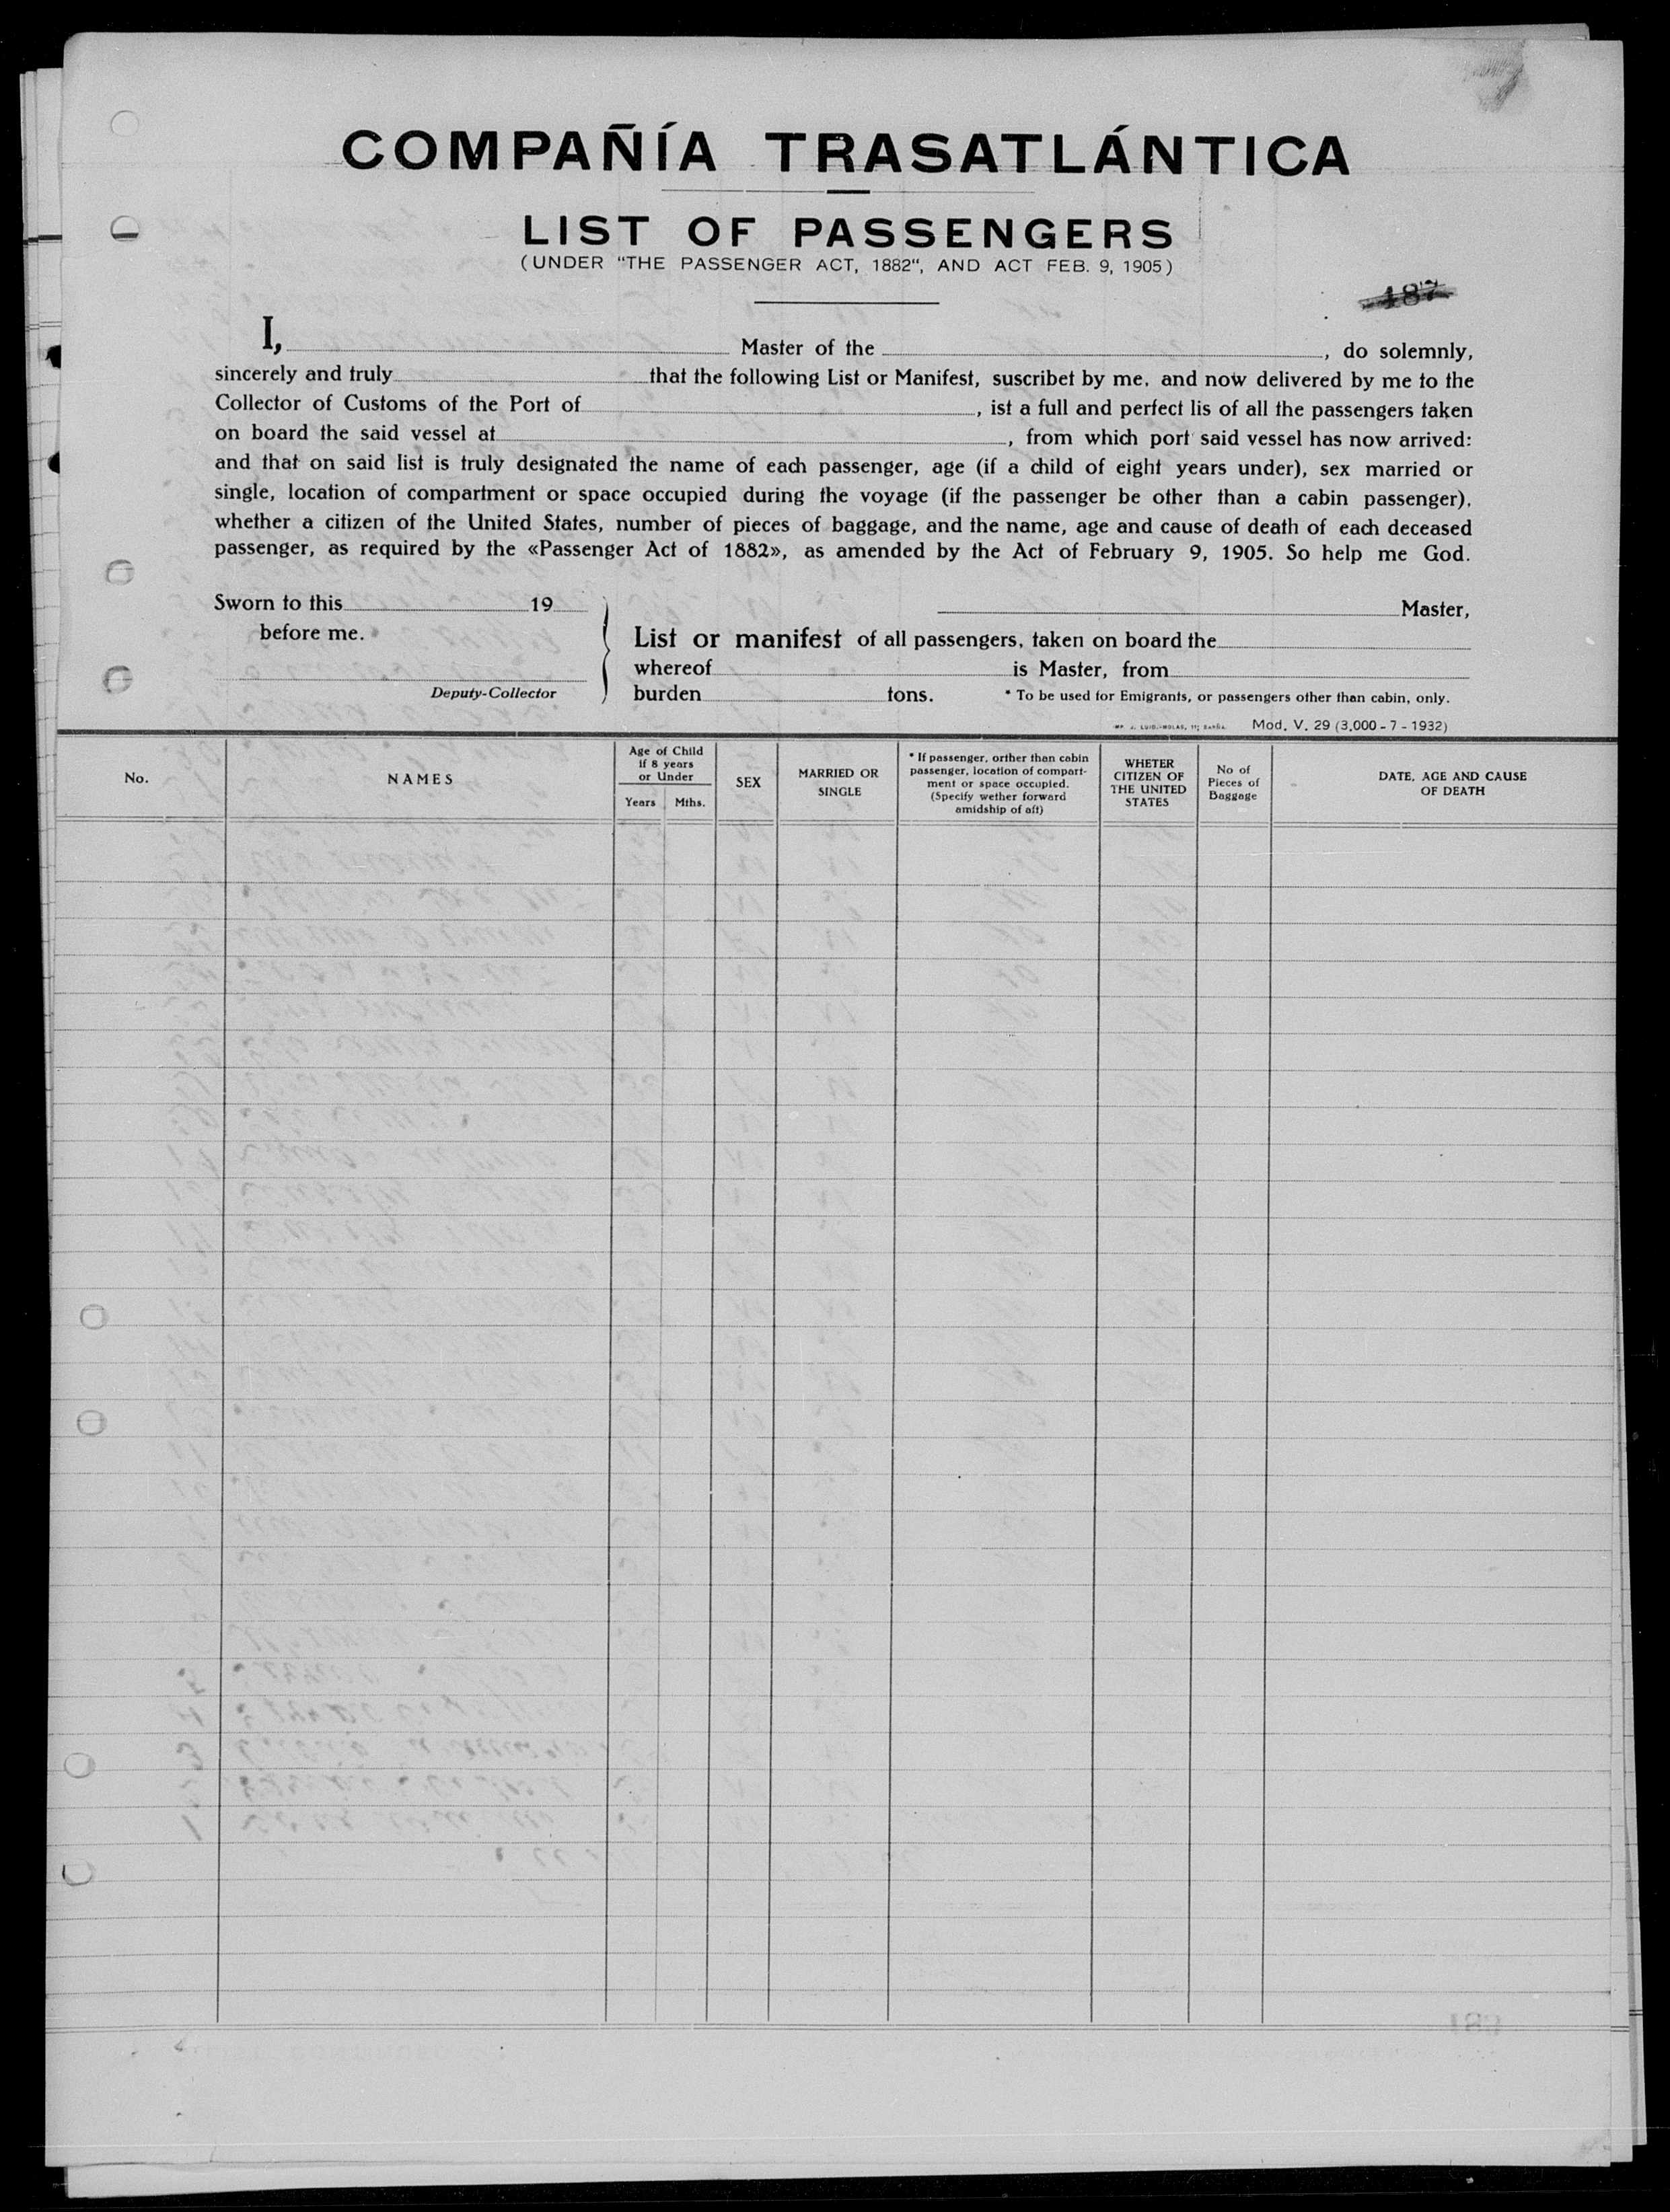 COMPAÑÍA TRASATLÁNTICA
LIST OF PASSENGERS
(UNDER "THE PASSENGER ACT, 1882", AND ACT FEB. 9, 1905)
187
I, Master of the , do solemnly,
sincerely and truly that the following List or Manifest, suscribet by me, and now delivered by me to the
Collector of Customs of the Port of , ist a full and perfect lis of all the passengers taken
on board the said vessel at , from which port said vessel has now arrived:
and that on said list is truly designated the name of each passenger, age (if a child of eight years under), sex married or
single, location of compartment or space occupied during the voyage (if the passenger be other than a cabin passenger),
whether a citizen of the United States, number of pieces of baggage, and the name, age and cause of death of each deceased
passenger, as required by the «Passenger Act of 1882», as amended by the Act of February 9, 1905. So help me God.
Sworn to this 19
before me.
Deputy-Collector
Master,
List or manifest of all passengers, taken on board the
whereof is Master, from
burden tons. * To be used for Emigrants, or passengers other than cabin, only.
Mod. V. 29 (3,000 - 7 - 1932)
No.
NAMES
Age of Child
if 8 years
or Under
Years Mths.
SEX
MARRIED OR
SINGLE
* If passenger, orther than cabin
passenger, location of compart-
ment or space occupied.
(Specify wether forward
amidship of aft)
WHETER
CITIZEN OF
THE UNITED
STATES
No of
Pieces of
Baggage
DATE, AGE AND CAUSE
OF DEATH